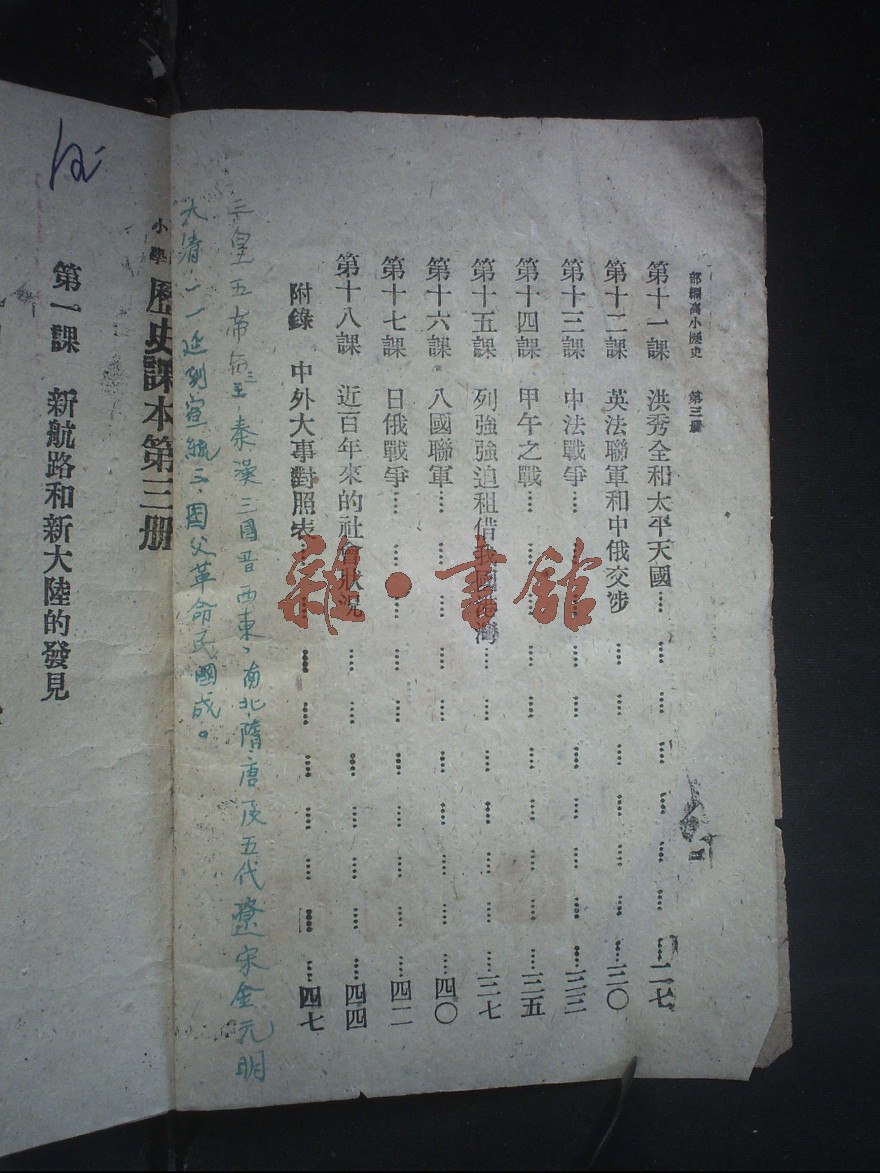 部編高小歷史 第三册
第十一課 洪秀全和太平天國……二七
第十二課 英法聯軍和中俄交涉……三〇
第十三課 中法戰爭……三三
第十四課 甲午之戰……三五
第十五課 列強強迫租借我國港灣……三七
第十六課 八國聯軍……四〇
第十七課 日俄戰爭……四二
第十八課 近百年來的社會狀況……四四
附錄 中外大事對照表……四七
三皇五帝 三王 秦漢三國晋西東、南北隋唐及五代遼宋金元明
大清一一延到宣統三、国父革命民國成。
小學 歷史課本第三册
第一課 新航路和新大陸的發見
雜·書館